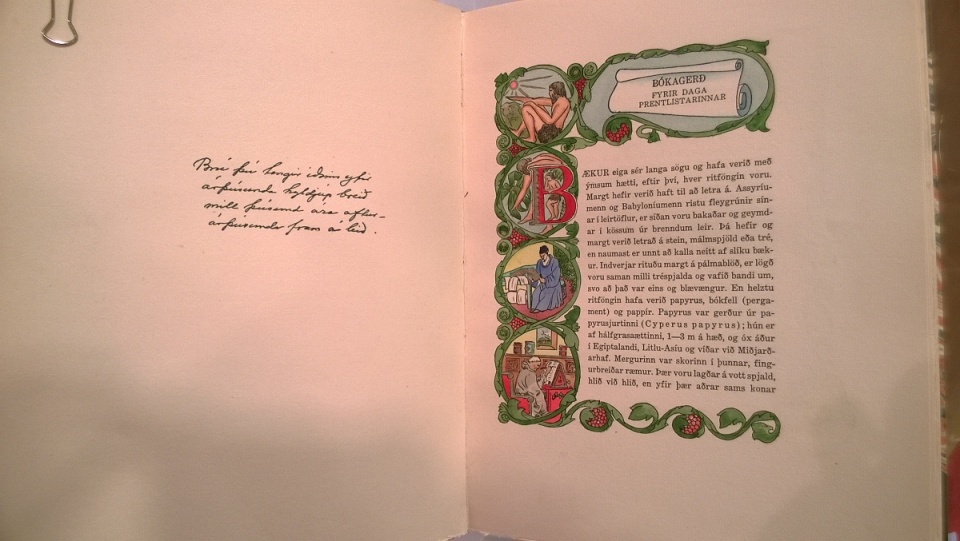 Brú þú tengir yfir
árþúsunda hyldjúp breið
þúsund ára aftur-
árþúsunda fram á leið.
BÓKAGERÐ
FYRIR DAGA
PRENTLISTARINNAR
BÆKUR eiga sér langa sögu og hafa verið með
ýmsum hætti, eftir því, hver ritföngin voru.
Margt hefir verið haft til að letra á. Assyríu-
menn og Babyloníumenn ristu fleygrúnir sín-
ar í leirtöflur, er síðan voru bakaðar og geymd-
ar í kössum úr brenndum leir. Þá hefir og
margt verið letrað á stein, málmspjöld eða tré,
en naumast er unnt að kalla neitt af slíku bæk-
ur. Indverjar rituðu margt á pálmablöð, er lögð
voru saman milli tréspjalda og vafið bandi um,
svo að það var eins og blævængur. En helztu
ritföngin hafa verið papyrus, bókfell (perga-
ment) og pappír. Papyrus var gerður úr pa-
pyrusjurtinni (Cyperus papyrus); hún er
af hálfgrasaættinni, 1—3 m á hæð, og óx áður
í Egiptalandi, Litlu-Asíu og víðar við Miðjarð-
arhaf. Mergurinn var skorinn í þunnar, fing-
urbreiðar ræmur. Þær voru lagðar á vott spjald,
hlið við hlið, en yfir þær aðrar sams konar